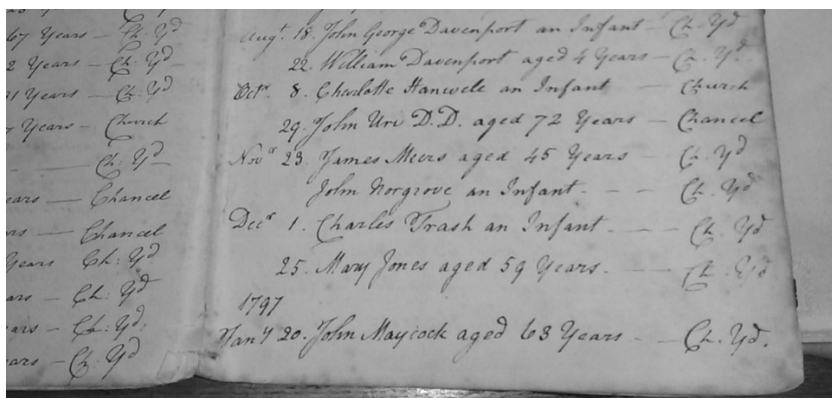 67 Years - Ch: Yd
2 Years - Ch: Yd
71 Years - Ch: Yd
7 Years - Church
- Ch: Yd
ears - Chancel
ars - Chancel
Years Ch: Yd
ars - Ch: Yd
ars - Ch: Yd:
ears - Ch: Yd
Augt. 18. John George Davenport an Infant - Ch. Yd
22. William Davenport aged 4 Years - Ch. Yd.
Octr. 8. Charlotte Hanwell an Infant - Church
29. John Uri D.D. aged 72 Years - Chancel
Novr 23. James Meers aged 45 Years - Ch. Yd
John Norgrove an Infant. - - Ch. Yd
Decr 1. Charles Trash an Infant. - - Ch. Yd
25. Mary Jones aged 59 Years. - - Ch. Yd
1797
Jany 20. John Maycock aged 63 Years - - Ch. Yd.